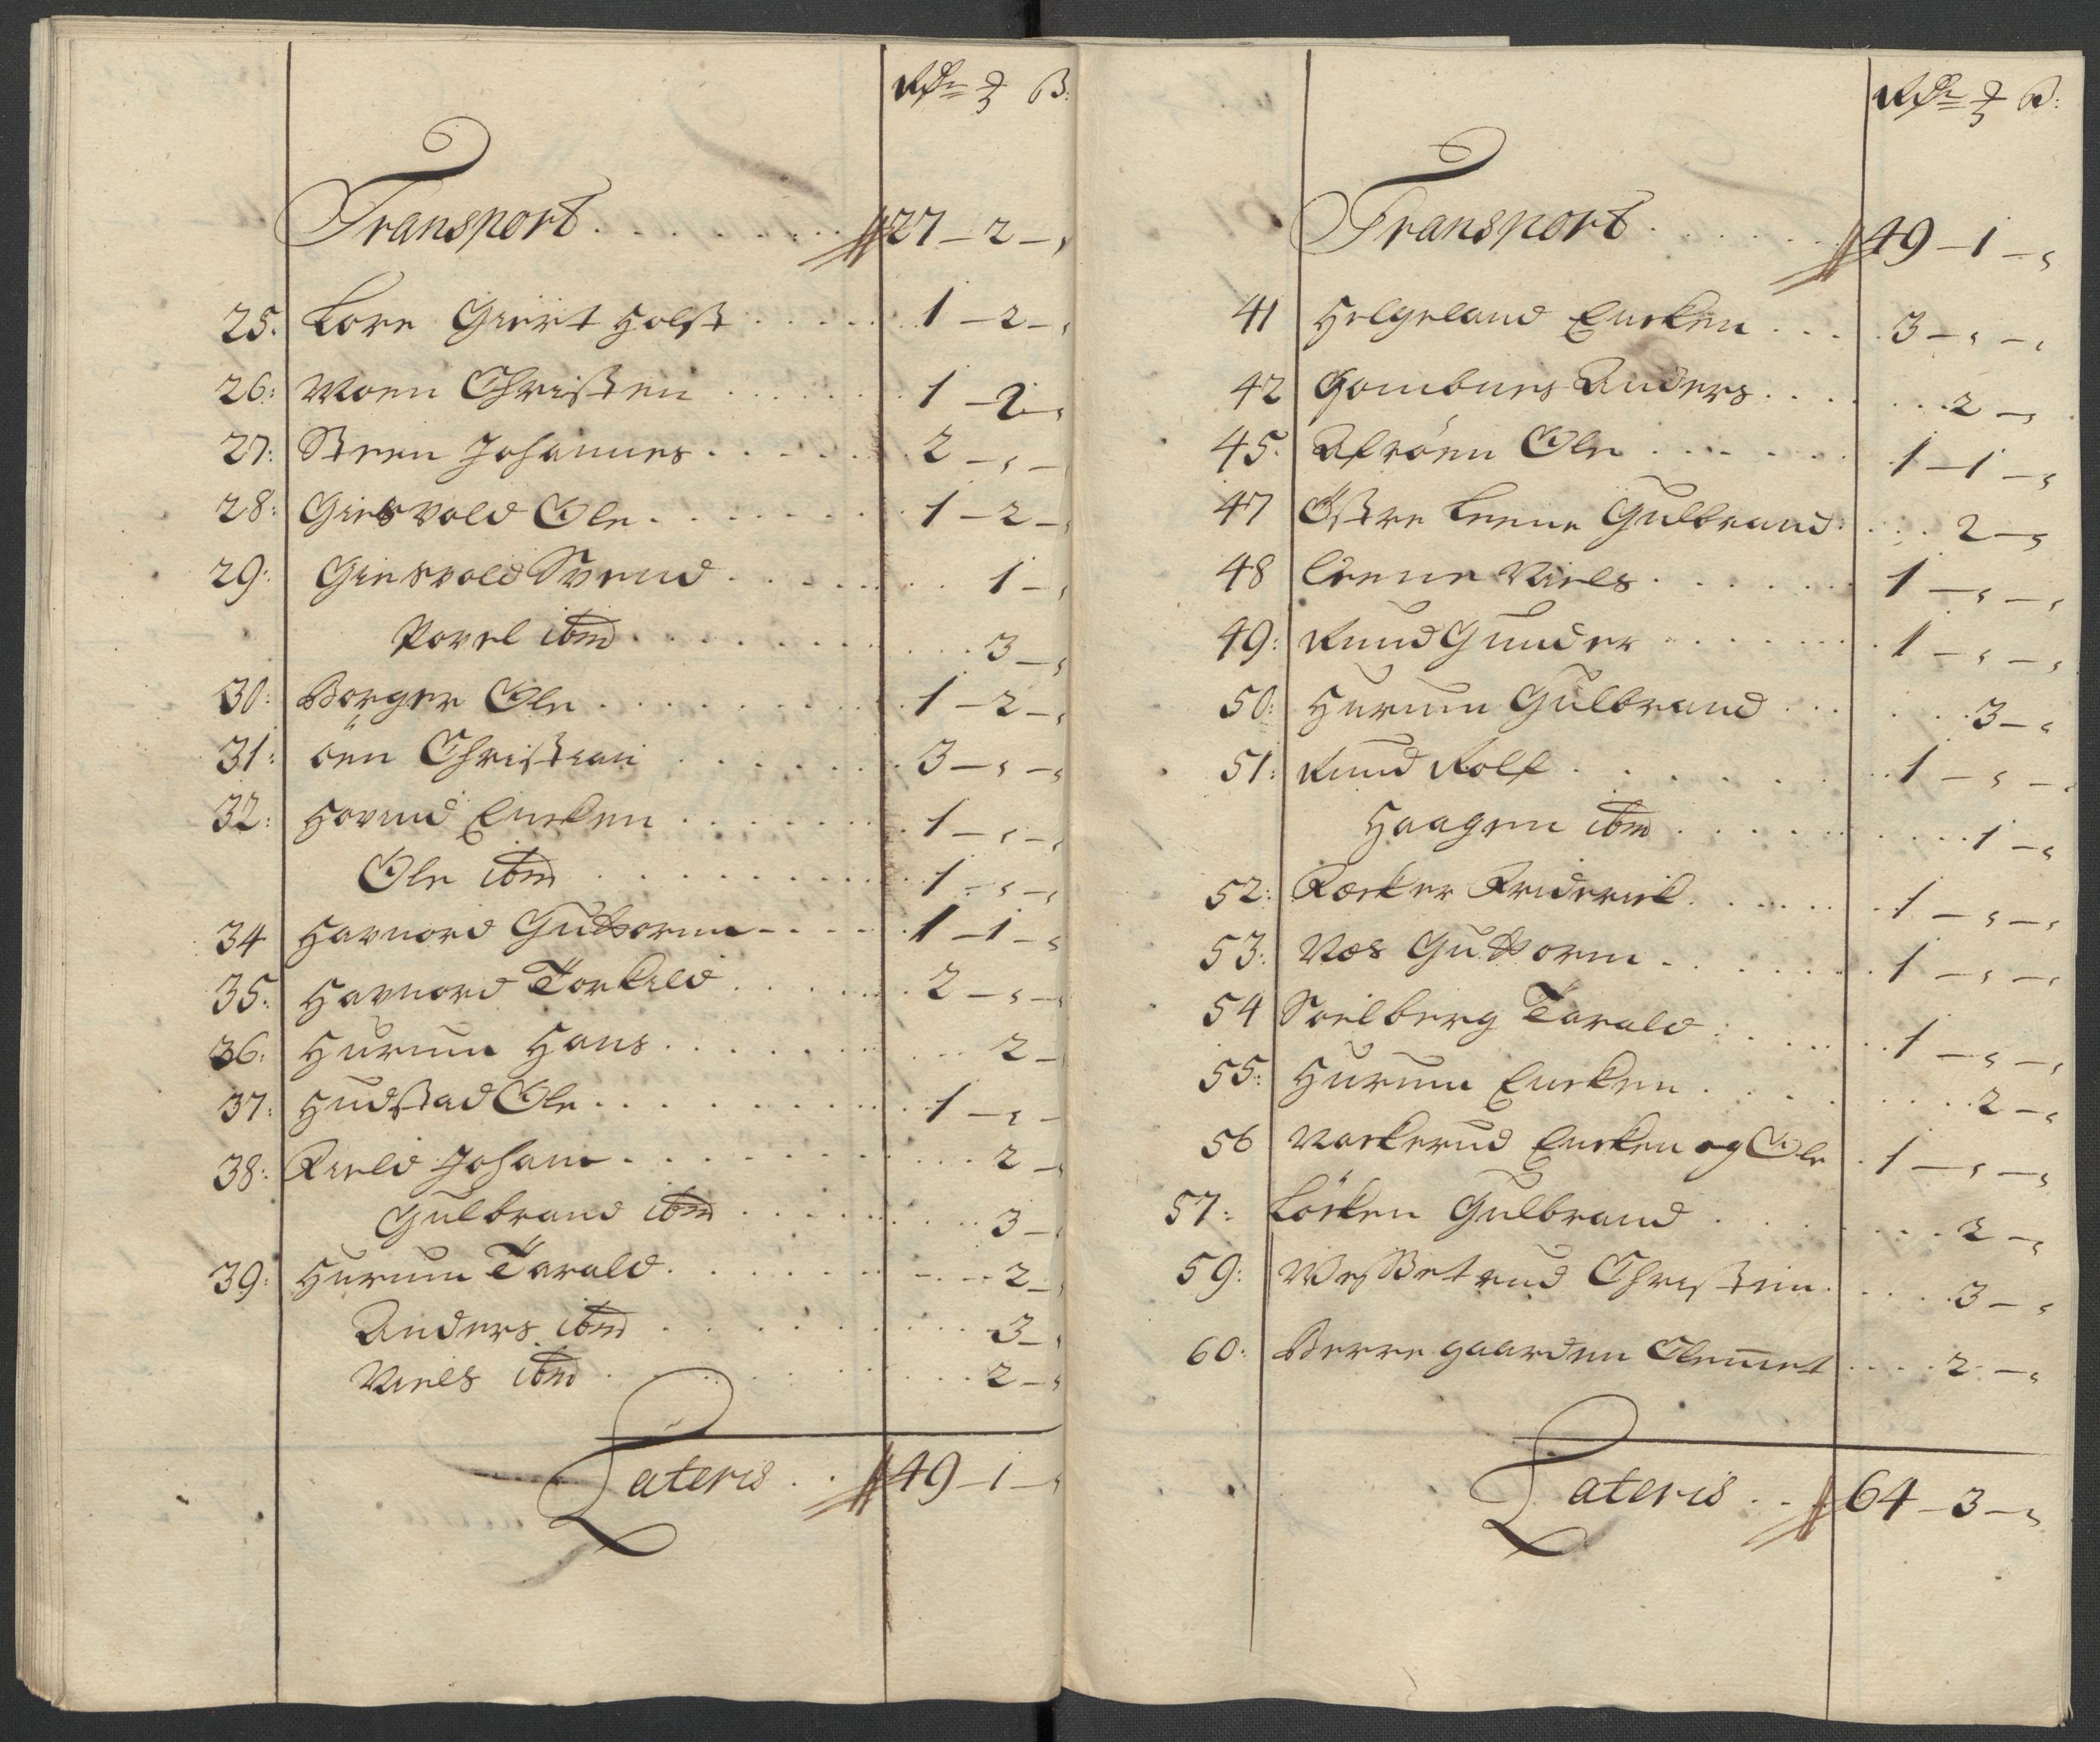 Rdr ⁊ ß:
Transport 27 – 2 – ,
25. Lore Giert Holst 1 – 2 – ,
26: Moen Christen 1 – 2 – ,
27: Steen Johannes 2 – , –
28: Giesvold Ole 1 – 2 – ,
29: Giesvold Svend 1 – ,
Povel ibm 3 – ,
30: Borger Ole 1 – 2 – ,
31: öen Christian 3 – , – ,
32: Hovind Encken 1 – , – ,
Ole ibm 1 – , – ,
34 Havnord Guttorm 1 – 1 – ,
35: Havnord Torkild 2 – , –
36: Hurum Hans 2 –
37: Hudstad Ole 1 – , –
38: Kield Johan 2 – ,
Gulbrand ibm 3 –
39: Hurum Tarald 2 – ,
Anders ibm 3 – ,
Niels ibm 2 – ,
Lateris 49 – 1 – ,
Rdr ⁊ ß:
Transport 49 – 1 – ,
41 Helgeland Encken 3 – , – ,
42 Gombnes Anders 2 – ,
45. Afröen Ole 1 – 1 – ,
47 Östre Leene Gulbrand 2 – ,
48 Leene Niels 1 – , – ,
49: Rud Gunder 1 – , – ,
50: Hurum Gulbrand 3 – ,
51: Rud Rolf 1 – , –
Haagen ibm 1 – ,
52: Röcker Friderick 1 – , – ,
53: Næs Guttorm 1 – , – ,
54 Soelberg Tarald 1 – , – ,
55: Hurum Encken 2 – ,
56 Nackerud Encken og Ole 1 – , – ,
57: Löcken Gulbrand 2 – ,
59: Wessetrud Christen 3 – ,
60: Berregaarden Clemet 2 – ,
Lateris 64 – 3 – ,